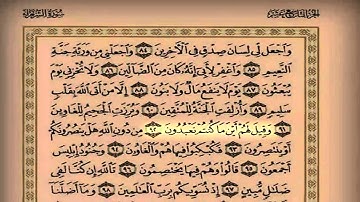 الجزء التاسع عشر سورة الشعراء
وَاجْعَل لِّي لِسَانَ صِدْقٍ فِي الْآخِرِينَ ٨٤ وَاجْعَلْنِي مِن وَرَثَةِ جَنَّةِ
النَّعِيمِ ٨٥ وَاغْفِرْ لِأَبِي إِنَّهُ كَانَ مِنَ الضَّالِّينَ ٨٦ وَلَا تُخْزِنِي يَوْمَ
يُبْعَثُونَ ٨٧ يَوْمَ لَا يَنفَعُ مَالٌ وَلَا بَنُونَ ٨٨ إِلَّا مَنْ أَتَى اللَّهَ بِقَلْبٍ
سَلِيمٍ ٨٩ وَأُزْلِفَتِ الْجَنَّةُ لِلْمُتَّقِينَ ٩٠ وَبُرِّزَتِ الْجَحِيمُ لِلْغَاوِينَ
٩١ وَقِيلَ لَهُمْ أَيْنَ مَا كُنتُمْ تَعْبُدُونَ ٩٢ مِن دُونِ اللَّهِ هَلْ يَنصُرُونَكُمْ
أَوْ يَنتَصِرُونَ ٩٣ فَكُبْكِبُوا فِيهَا هُمْ وَالْغَاوُونَ ٩٤ وَجُنُودُ إِبْلِيسَ
أَجْمَعُونَ ٩٥ قَالُوا وَهُمْ فِيهَا يَخْتَصِمُونَ ٩٦ تَاللَّهِ إِن كُنَّا لَفِي
ضَلَالٍ مُّبِينٍ ٩٧ إِذْ نُسَوِّيكُم بِرَبِّ الْعَالَمِينَ ٩٨ وَمَا أَضَلَّنَا